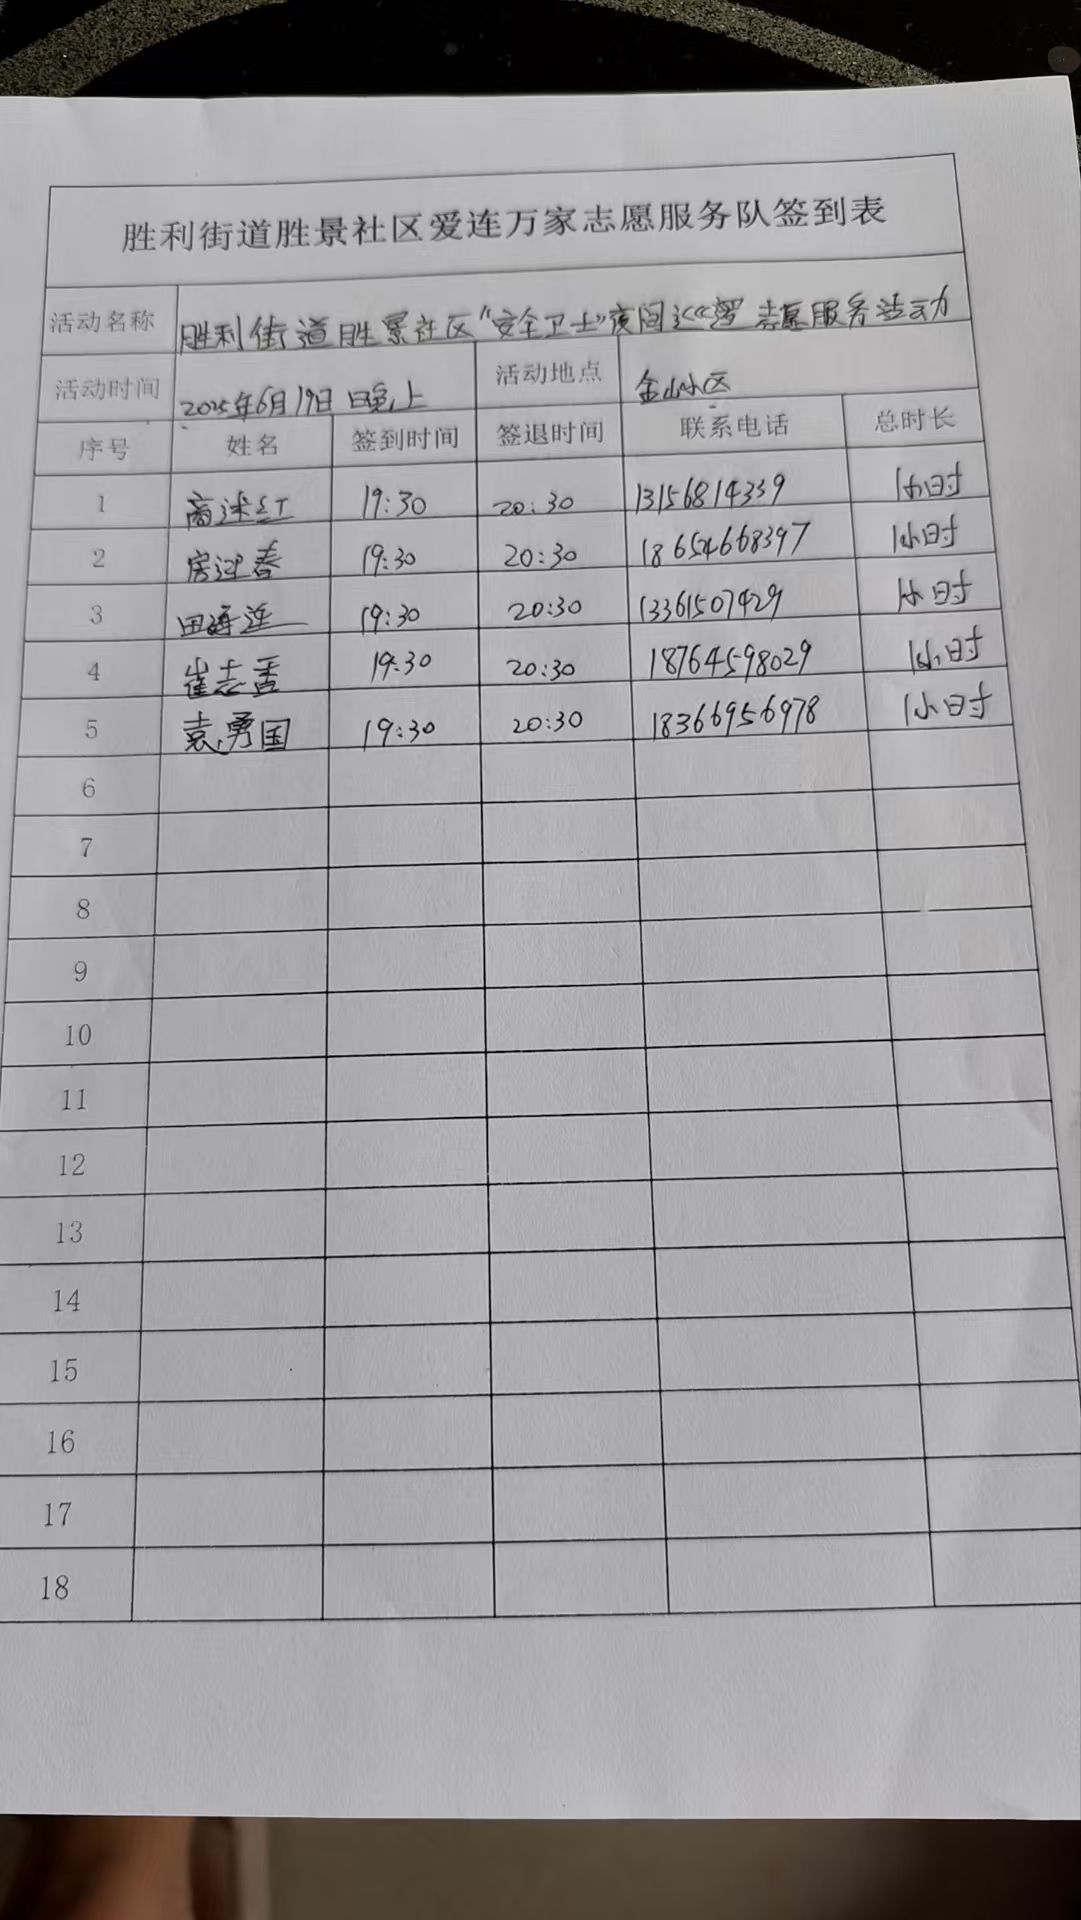 胜利街道胜景社区爱连万家志愿服务队签到表
活动名称 胜利街道胜景社区“安全卫士”夜间巡逻志愿服务活动
活动时间 2025年6月19日晚上 活动地点 金山小区
序号 姓名 签到时间 签退时间 联系电话 总时长
1 高述红 19:30 20:30 13156814339 1小时
2 房迎春 19:30 20:30 18654668397 1小时
3 田 莲 19:30 20:30 13361507429 1小时
4 崔志 19:30 20:30 18764598029 1小时
5 袁勇国 19:30 20:30 18366956978 1小时
6
7
8
9
10
11
12
13
14
15
16
17
18